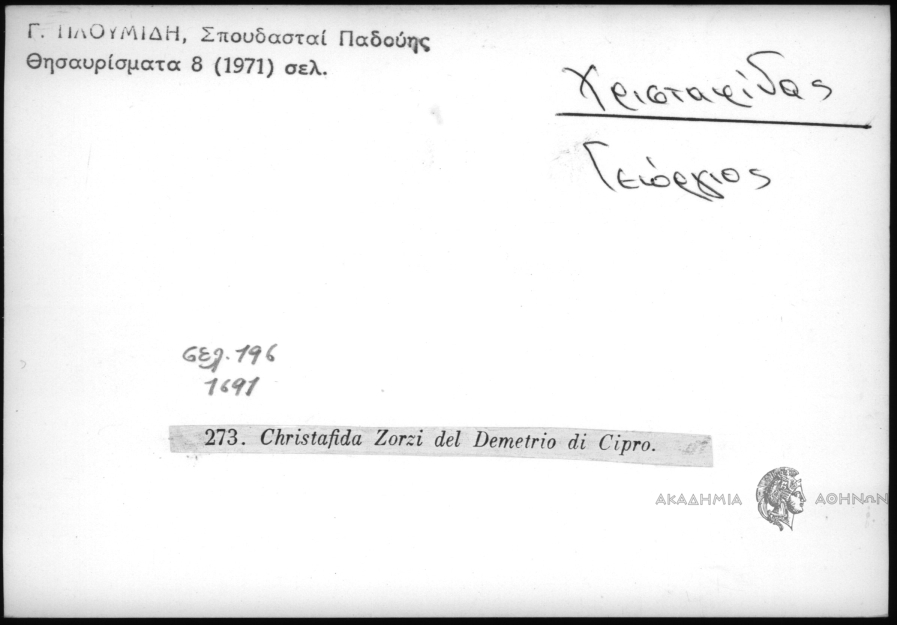 Γ. ΠΛΟΥΜΙΔΗ, Σπουδασταί Παδούης
Θησαυρίσματα 8 (1971) σελ.
Χρισταφίδας
Γεώργιος
σελ. 196
1691
273. Christafida Zorzi del Demetrio di Cipro.
ΑΚΑΔΗΜΙΑ ΑΘΗΝΩΝ